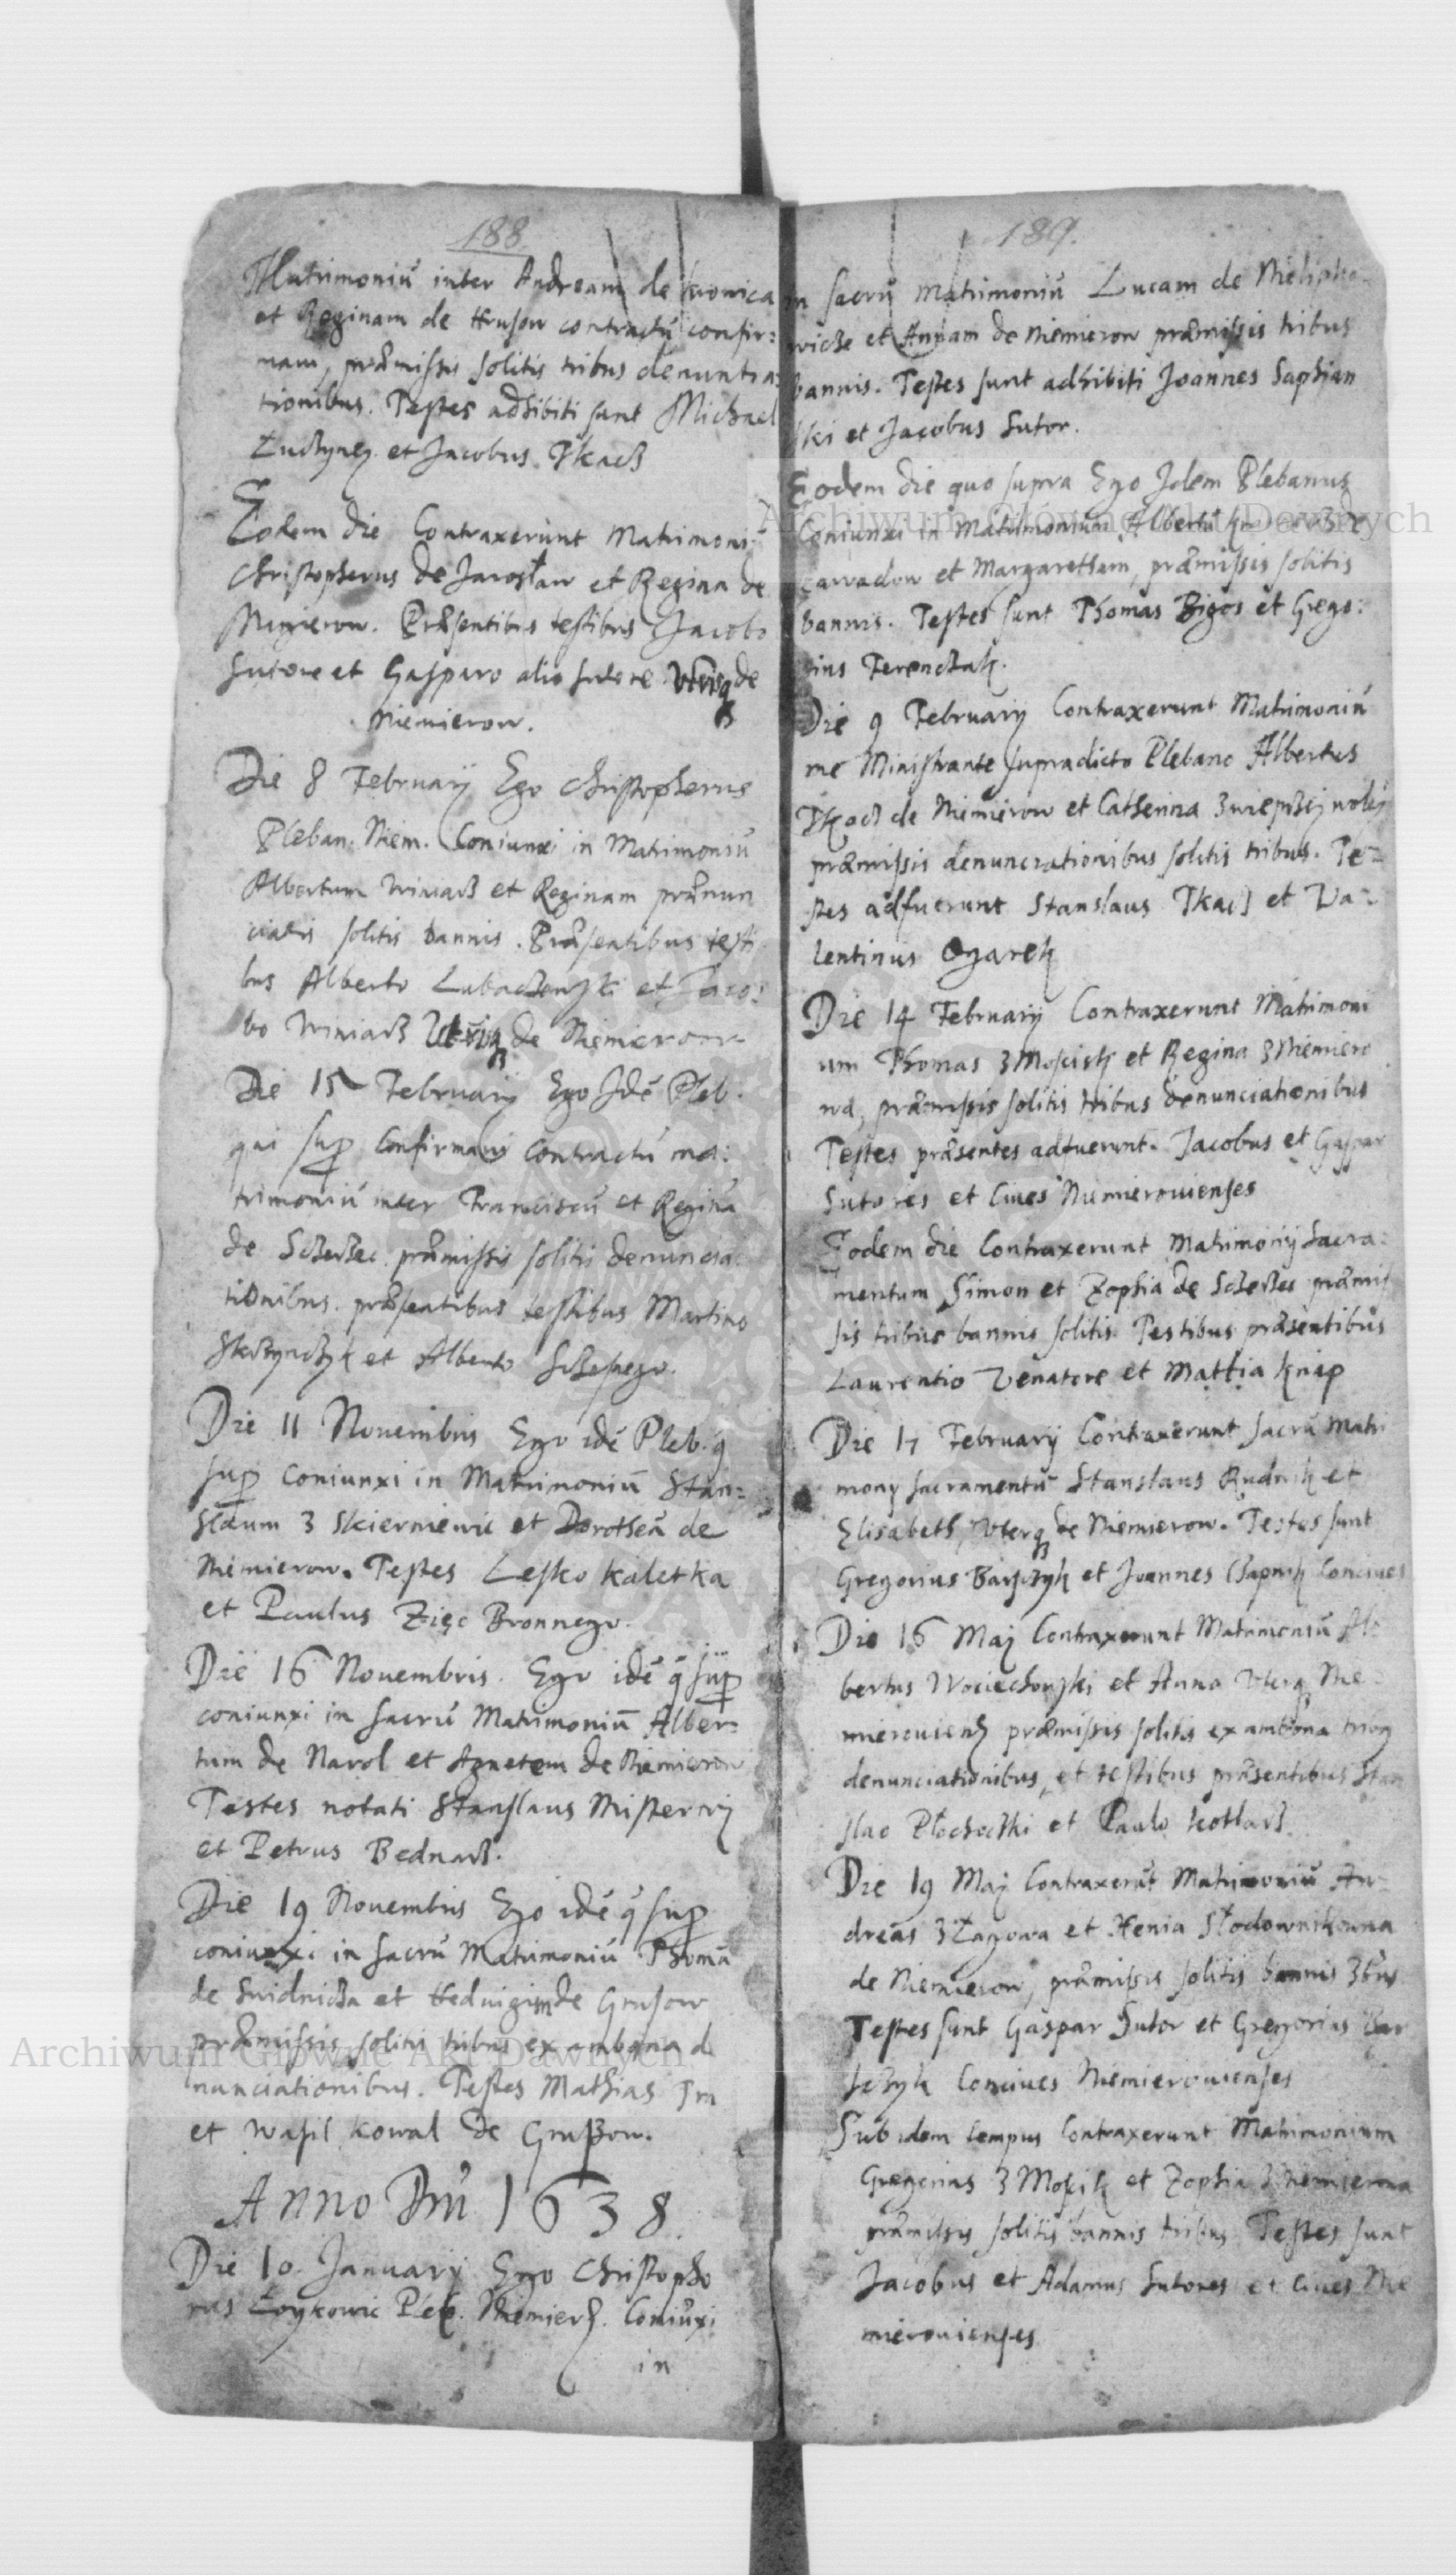 188
Matrimoniũ inter Andream de
et Reginam de Hrusow contractũ confir=
nam, præmissis solitis tribus denuntia=
tionibus. Testes adhibiti sunt Michael
et Jacobus Tkacz
Eodem die Contraxerunt Matrimoniũ
Christopherus de Jarosław et Regina de
Niemierow. Præsentibus testibus Jacobo
Sutore et Gasparo alio sutore de
Niemierow.
Die 8 February Ego Christopherus
Pleban. Niem. Coniunxi in Matrimoniũ
Albertum Winiarz et Reginam prænun
ciatis solitis bannis. Præsentibus testi
bus Alberto Lubaczewski et Jaco:
bo Winiarz de Niemierow
Die 15 February Ego Idẽ Pleb.
qui sup Confirmavi Contractũ ma:
trimoniũ inter Franciscũ et Reginã
de præmissis solitis denuncia
tionibus. præsentibus testibus Martino
et Alberto
Die 11 Nouembris Ego idẽ Pleb. q
sup coniunxi in Matrimoniũ Stan=
slaum z Skierniewic et Dorotheã de
Niemierow. Testes Lesko Kaletka
et Paulus Zięc Bronnego.
Die 16 Nouembris. Ego idẽ q̃ sup
coniunxi in sacrũ Matrimoniũ Alber=
tum de Narol et Agnetem de Niemierow
Testes notati Stanslaus Misterny
et Petrus Bednarz.
Die 19 Nouembris Ego idẽ q̃ sup
coniunxi in sacrũ Matrimoniũ Thomã
de Swidnicza et Heduigim de Grusow
præmissis solitis tribus ex ambona de
nunciationibus. Testes Mathias
et Wasil Kowal de Gruszow.
Anno Dni 1638
Die 10. January Ego Christopho
rus Pleb. Niemier. Coniũxi
in
189.
in sacrũ matrimoniũ Lucam de
et Annam de Niemierow præmissis tribus
bannis. Testes sunt adhibiti Joannes Saphian
ski et Jacobus Sutor.
Eodem die quo supra Ego Idem Plebanus
Coniunxi in Matrimonium Albertũ
et Margaretham, præmissis solitis
bannis. Testes sunt Thomas Bigos et Grego:
rius Ferenczak.
Die 9 February Contraxerunt Matrimoniũ
me Ministrante supradicto Plebano Albertus
Tkacz de Niemierow et Catherina
præmissis denunciationibus solitis tribus. Te=
stes adfuerunt Stanslaus Tkacz et Va=
lentinus Ogarek
Die 14 February Contraxerunt Matrimoni
um Thomas z Moscisk et Regina z Niemiero
wa, præmissis solitis tribus denunciationibus
Testes præsentes adfuerunt. Jacobus et Gaspar
Sutores et Ciues Niemierouienses
Eodem die Contraxerunt Matrimonij Sacra:
mentum Simon et Zophia de præmis
sis tribus bannis solitis. Testibus præsentibus
Laurentio Venatore et Mattia Knap
Die 17 February Contraxerunt sacrũ matri
mony sacramentũ Stanslaus Rudnik et
Elisabeth, Vterq de Niemierow. Testes sunt
Gregorius Barszyk et Joannes Czapnik Conciues
Die 16 May Contraxerunt Matrimoniũ Al
bertus Wociechowski et Anna Vterq Nie
mierouiens præmissis solitis ex ambona
denunciationibus, et testibus præsentibus Stan
slao et Paulo Kotlarz
Die 19 May Contraxerũt Matrimoniũ An
dreas z Łagowa et Xenia Słodownikowna
de Niemierow, præmissis solitis bannis 3bus
Testes sunt Gaspar Sutor et Gregorius Bar
szyk Conciues Niemierouienses
Sub idem tempus Contraxerunt Matrimonium
Gregorius z et Zophia z Niemierowa
præmissis solitis bannis tribus Testes sunt
Jacobus et Adamus Sutores et Ciues Nie
mierouienses
Archiwum Główne Akt Dawnych
Archiwum Główne Akt Dawnych